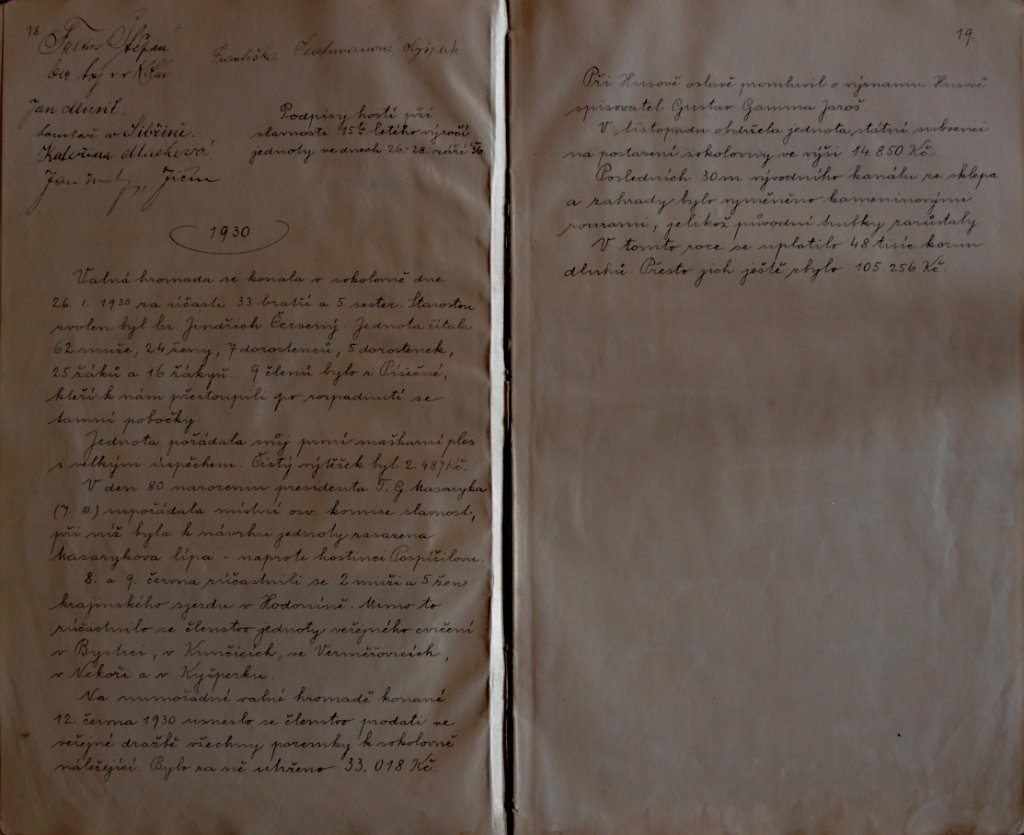 18
Faltus Štěpán
Františka Teichmanová, Kyšperk
Jan Musil,
v Sibřině.
Kateřina Machková
Jičín
Podpisy hostí při
slavnosti 15ti letého výročí
jednoty ve dnech 26.-28. září 36.
1930
Valná hromada se konala v sokolovně dne
26. 1. 1930 za účasti 33 bratří a 5 sester. Starostou
zvolen byl br. Jindřich Červený. Jednota čítala
62 muže, 24 ženy, 7 dorostenců, 5 dorostenek,
25 žáků a 16 žákyň. 9 členů bylo z Písečné,
kteří k nám přestoupili po rozpadnutí se
tamní pobočky.
Jednota pořádala svůj první maškarní ples
s velkým úspěchem. Čistý výtěžek byl 2.487 Kč.
V den 80. narozenin presidenta T. G. Masaryka
(7. III.) uspořádala místní osv. komise slavnost,
při níž byla k návrhu jednoty zasazena
Masarykova lípa - naproti hostinci Pospíšilovu.
8. a 9. června zúčastnili se 2 muži a 5 žen
krajinského sjezdu v Hodoníně. Mimo to
zúčastnilo se členstvo jednoty veřejného cvičení
v Bystrci, v Kunčicích, ve Verměřovicích,
v Nekoři a v Kyšperku.
Na mimořádné valné hromadě konané
12. června 1930 usneslo se členstvo prodati ve
veřejné dražbě všechny pozemky k sokolovně
náležející. Bylo za ně utrženo 33.018 Kč.
19.
Při Husově oslavě promluvil o významu Husově
spisovatel Gustav Gamma Jaroš.
V listopadu obdržela jednota státní subvenci
na postavení sokolovny ve výši 14.850 Kč.
Posledních 30 m vývodního kanálu ze sklepa
a zahrady bylo vyměněno kameninovými
rourami, jelikož původní trubky zarůstaly.
V tomto roce se uplatilo 48 tisíc korun
dluhů. Přesto jich ještě zbylo 105.256 Kč.